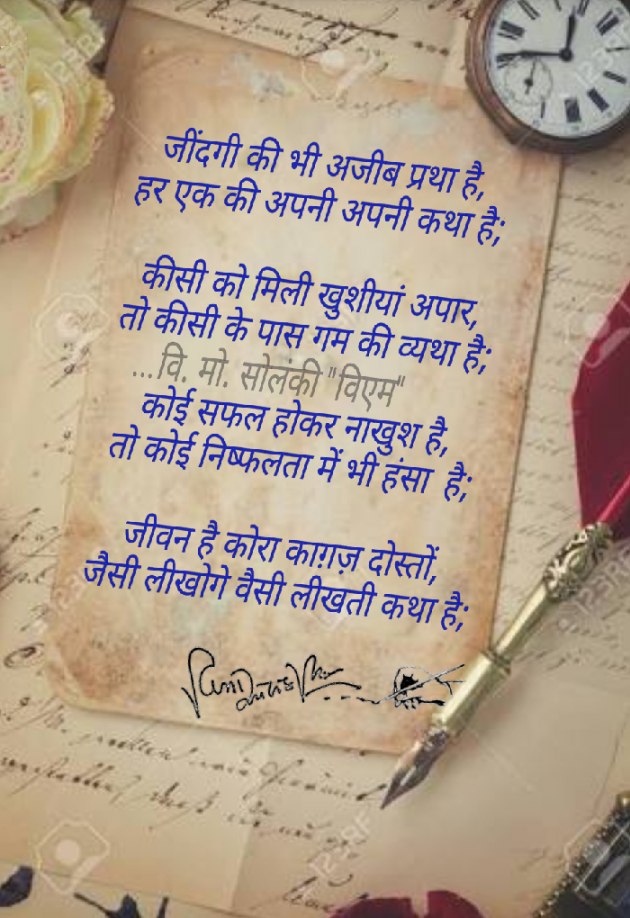 जींदगी की भी अजीब प्रथा है,
हर एक की अपनी अपनी कथा है;
कीसी को मिली खुशीयां अपार,
तो कीसी के पास गम की व्यथा है;
...वि. मो. सोलंकी "विएम"
कोई सफल होकर नाखुश है,
तो कोई निष्फलता में भी हंसा है;
जीवन है कोरा काग़ज़ दोस्तों,
जैसी लीखोगे वैसी लीखती कथा है;